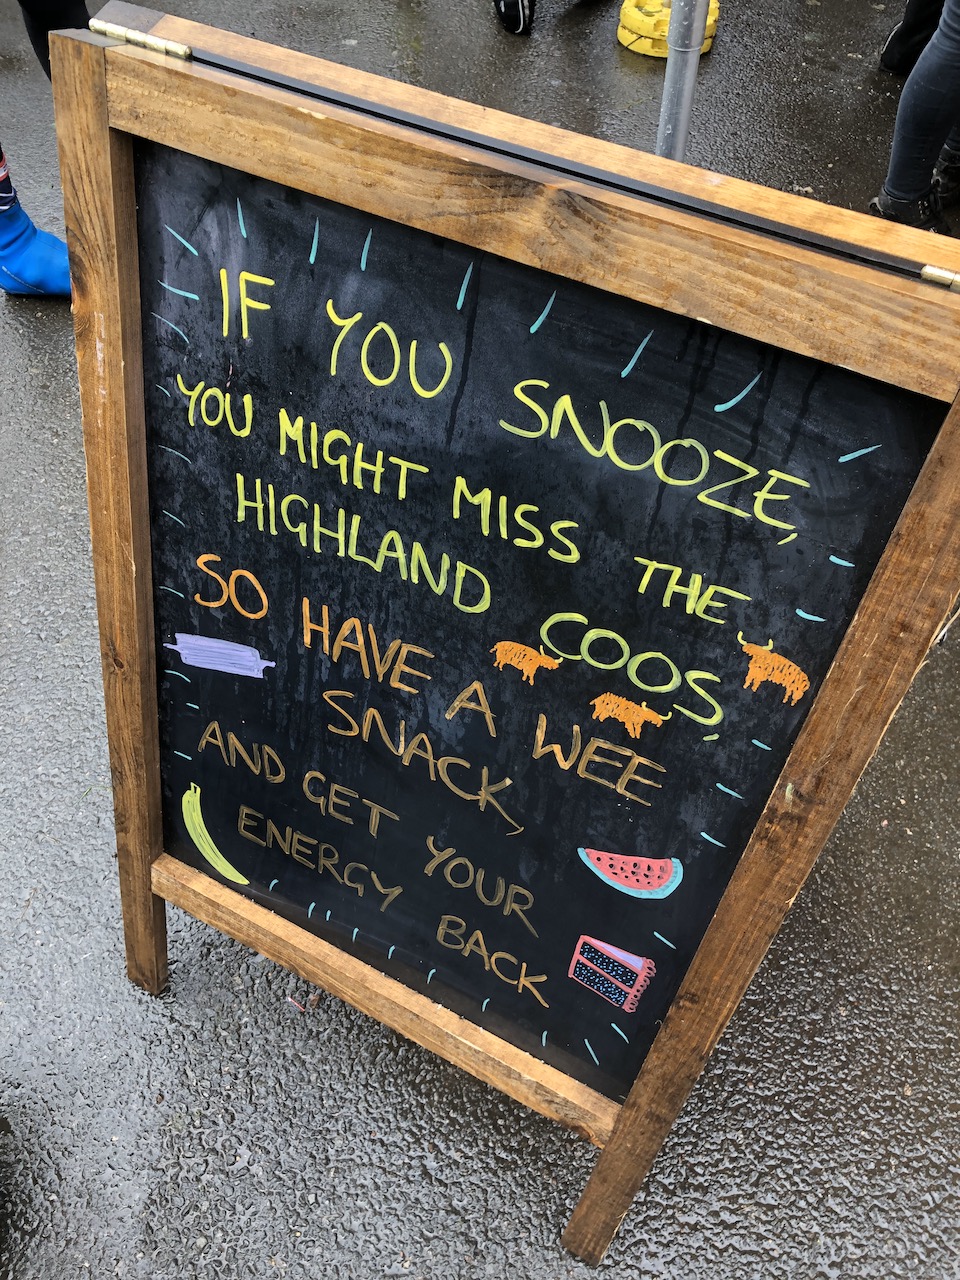 IF YOU SNOOZE,
YOU MIGHT MISS THE
HIGHLAND COOS,
SO HAVE A WEE
SNACK,
AND GET YOUR
ENERGY BACK